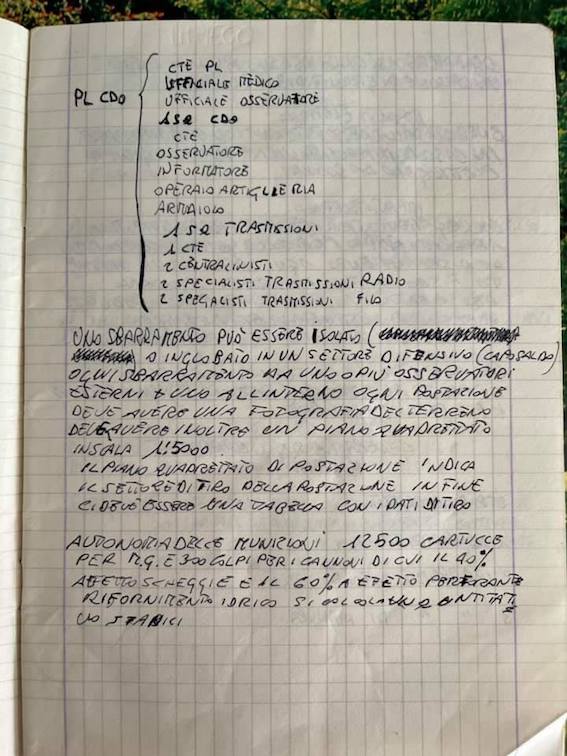 CTE PL
UFFICIALE MEDICO
PL CDO UFFICIALE OSSERVATORE
1 SQ CDO
CTE
OSSERVATORE
INFORMATORE
OPERAIO ARTIGLIERIA
ARMAIOLO
1 SQ TRASMISSIONI
1 CTE
2 CENTRALINISTI
2 SPECIALISTI TRASMISSIONI RADIO
2 SPECIALISTI TRASMISSIONI FILO
UNO SBARRAMENTO PUÒ ESSERE ISOLATO (
O INGLOBATO IN UN SETTORE DIFENSIVO (CAPOSALDO)
OGNI SBARRAMENTO HA UNO O PIÙ OSSERVATORI
ESTERNI + UNO ALL'INTERNO OGNI POSTAZIONE
DEVE AVERE UNA FOTOGRAFIA DEL TERRENO
DEVE AVERE INOLTRE UN PIANO QUADRETTATO
IN SCALA 1:5000.
IL PIANO QUADRETTATO DI POSTAZIONE INDICA
IL SETTORE DI TIRO DELLA POSTAZIONE INFINE
CI DEVE ESSERE UNA TABELLA CON I DATI DI TIRO
AUTONOMIA DELLE MUNIZIONI 12500 CARTUCCE
PER M.G. E 300 COLPI PER I CANNONI DI CUI IL 40%
A EFFETTO SCHEGGIE E IL 60% A EFETTO PERFORANTE
RIFORNIMENTO IDRICO SI CALCOLA